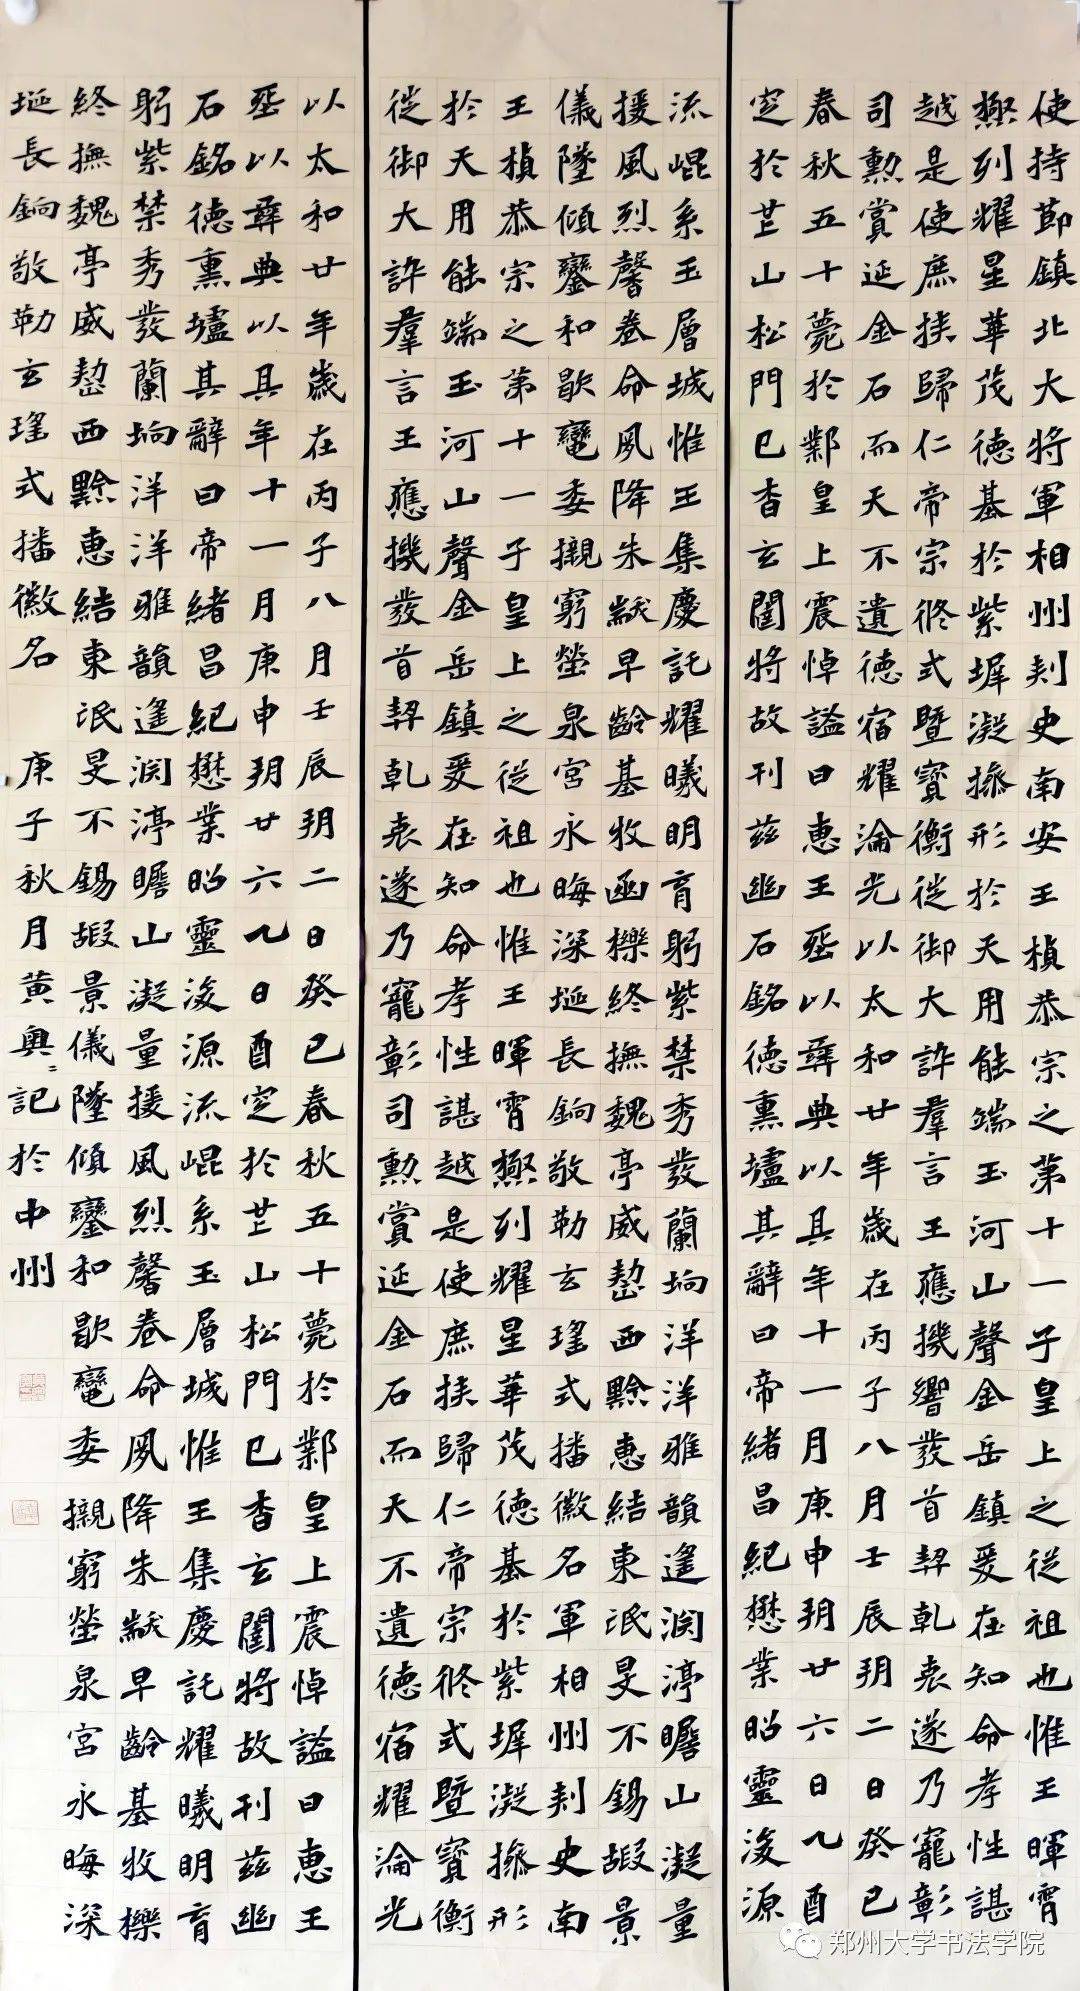 使持節鎮北大將軍相州刺史南安王楨恭宗之第十一子皇上之從祖也惟王暉霄
極列耀星華茂德基於紫墀凝操形於天用能端玉河山聲金岳鎮爰在知命孝性諶
越是使庶族歸仁帝宗攸式暨寶衡從御大訏羣言王應機響發首契乾衷遂乃寵彰
司勳賞延金石而天不遺德宿耀淪光以太和廿年歲在丙子八月壬辰朔二日癸巳
春秋五十薨於鄴皇上震悼謚曰惠王葬以彝典以其年十一月庚申朔廿六日乙酉
窆於芒山松門已杳玄闥將故刊茲幽石銘德熏壚其辭曰帝緒昌紀懋業昭靈浚源
流崐系玉層城惟王集慶託耀曦明育躬紫禁秀發蘭坰洋洋雅韻遙淵渟瞻山凝量
援風烈馨卷命夙降朱黻早齡基牧函櫟終撫魏亭威愸西黔惠結東氓旻不錫嘏景
儀墜傾鑾和歇鸞委櫬窮塋泉宮永晦深埏長鐍敬勒玄瑤式播徽名軍相州刺史南
王楨恭宗之第十一子皇上之從祖也惟王暉霄極列耀星華茂德基於紫墀凝操形
於天用能端玉河山聲金岳鎮爰在知命孝性諶越是使庶族歸仁帝宗攸式暨寶衡
從御大訏羣言王應機發首契乾衷遂乃寵彰司勳賞延金石而天不遺德宿耀淪光
以太和廿年歲在丙子八月壬辰朔二日癸巳春秋五十薨於鄴皇上震悼謚曰惠王
葬以彝典以其年十一月庚申朔廿六乙日酉窆於芒山松門已杳玄闥將故刊茲幽
石銘德熏壚其辭曰帝緒昌紀懋業昭靈浚源流崐系玉層城惟王集慶託耀曦明育
躬紫禁秀發蘭坰洋洋雅韻遙淵渟瞻山凝量援風烈馨卷命夙降朱黻早齡基牧櫟
終撫魏亭威愸西黔惠結東氓旻不錫嘏景儀墜傾鑾和歇鸞委櫬窮塋泉宮永晦深
埏長鐍敬勒玄瑤式播徽名 庚子秋月黃興二記於中州
郑州大学书法学院